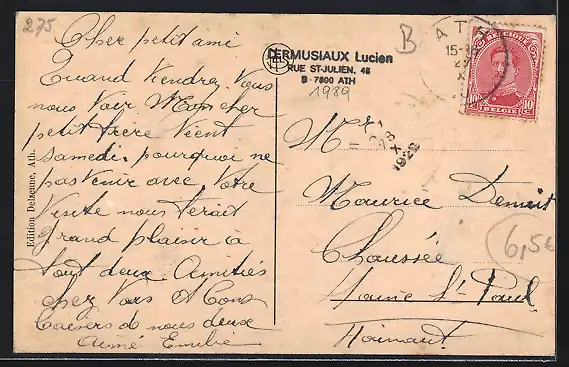 275
Cher petit ami
Quand viendrez vous
nous voir Mon cher
petit frère vient
samedi. pourquoi ne
pas venir avec Votre
Visite nous ferait
grand plaisir à
tout deux Amitiés
chez Vous et Bons
Baisers de nous deux
Aimé Emilie
Edition Delzenne, Ath.
DERMUSIAUX Lucien
RUE ST-JULIEN, 48
B-7800 ATH
1989
B
ATH
15-16
X
BELGIQUE
10 10
BELGIE
28
X
1922
Mr
Maurice
Chaussée
St Paul
Hainaut
6,5€